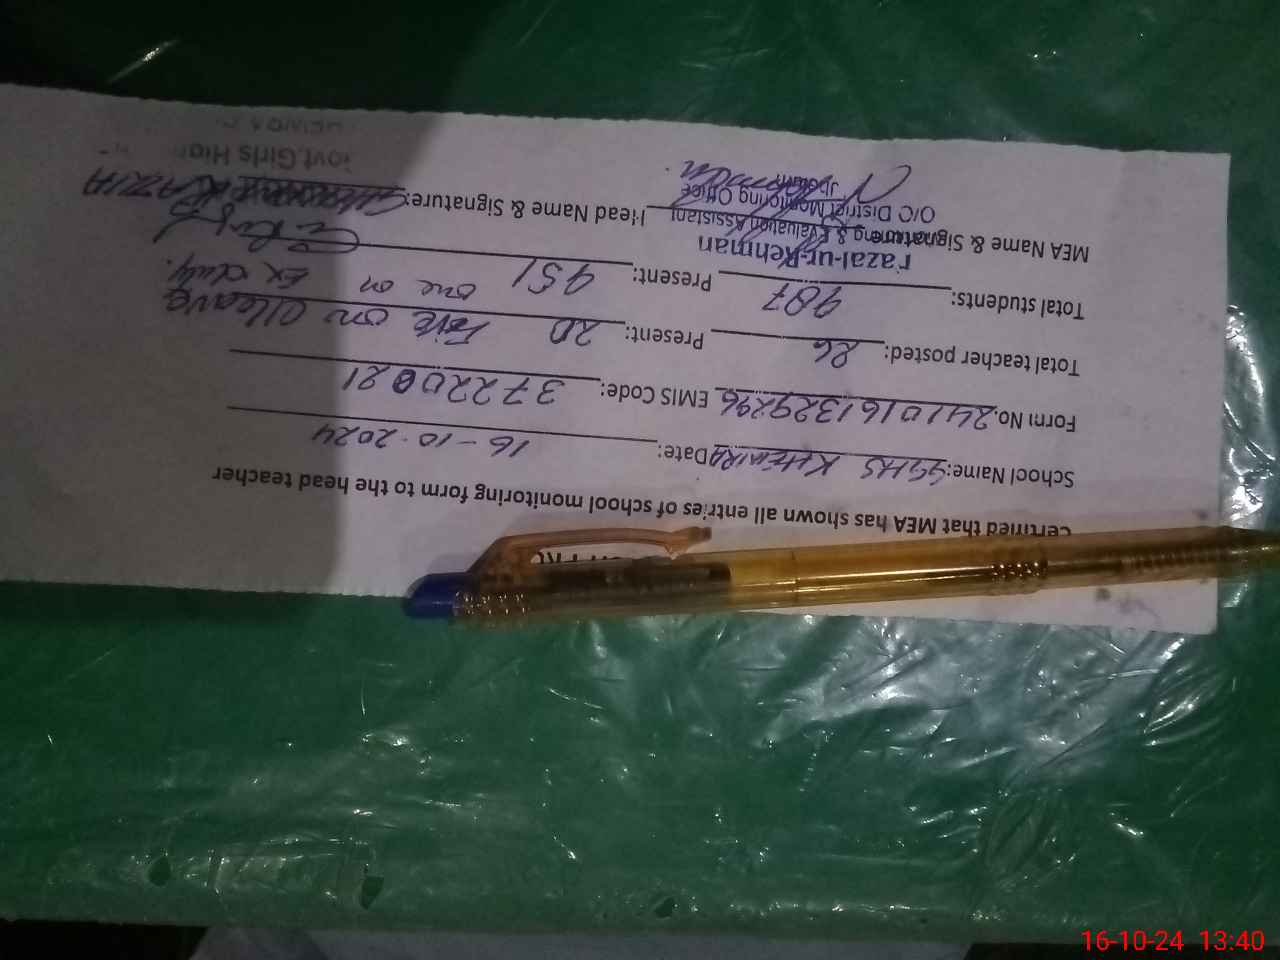 certified that MEA has shown all entries of school monitoring form to the head teacher
School Name: GGHS KHEWRA Date: 16-10-2024
Form No. 2410161329296 EMIS Code: 37220021
Total teacher posted: 26 Present: 20 Five on Cleave
one on Ex duty.
Total students: 987 Present: 951
Fazal-ur-Rehman
Monitoring & Evaluation Assistant
MEA Name & Signature: Head Name & Signature: RAZIA
O/C District Monitoring Office
Jhelum
Govt.Girls High
16-10-24 13:40